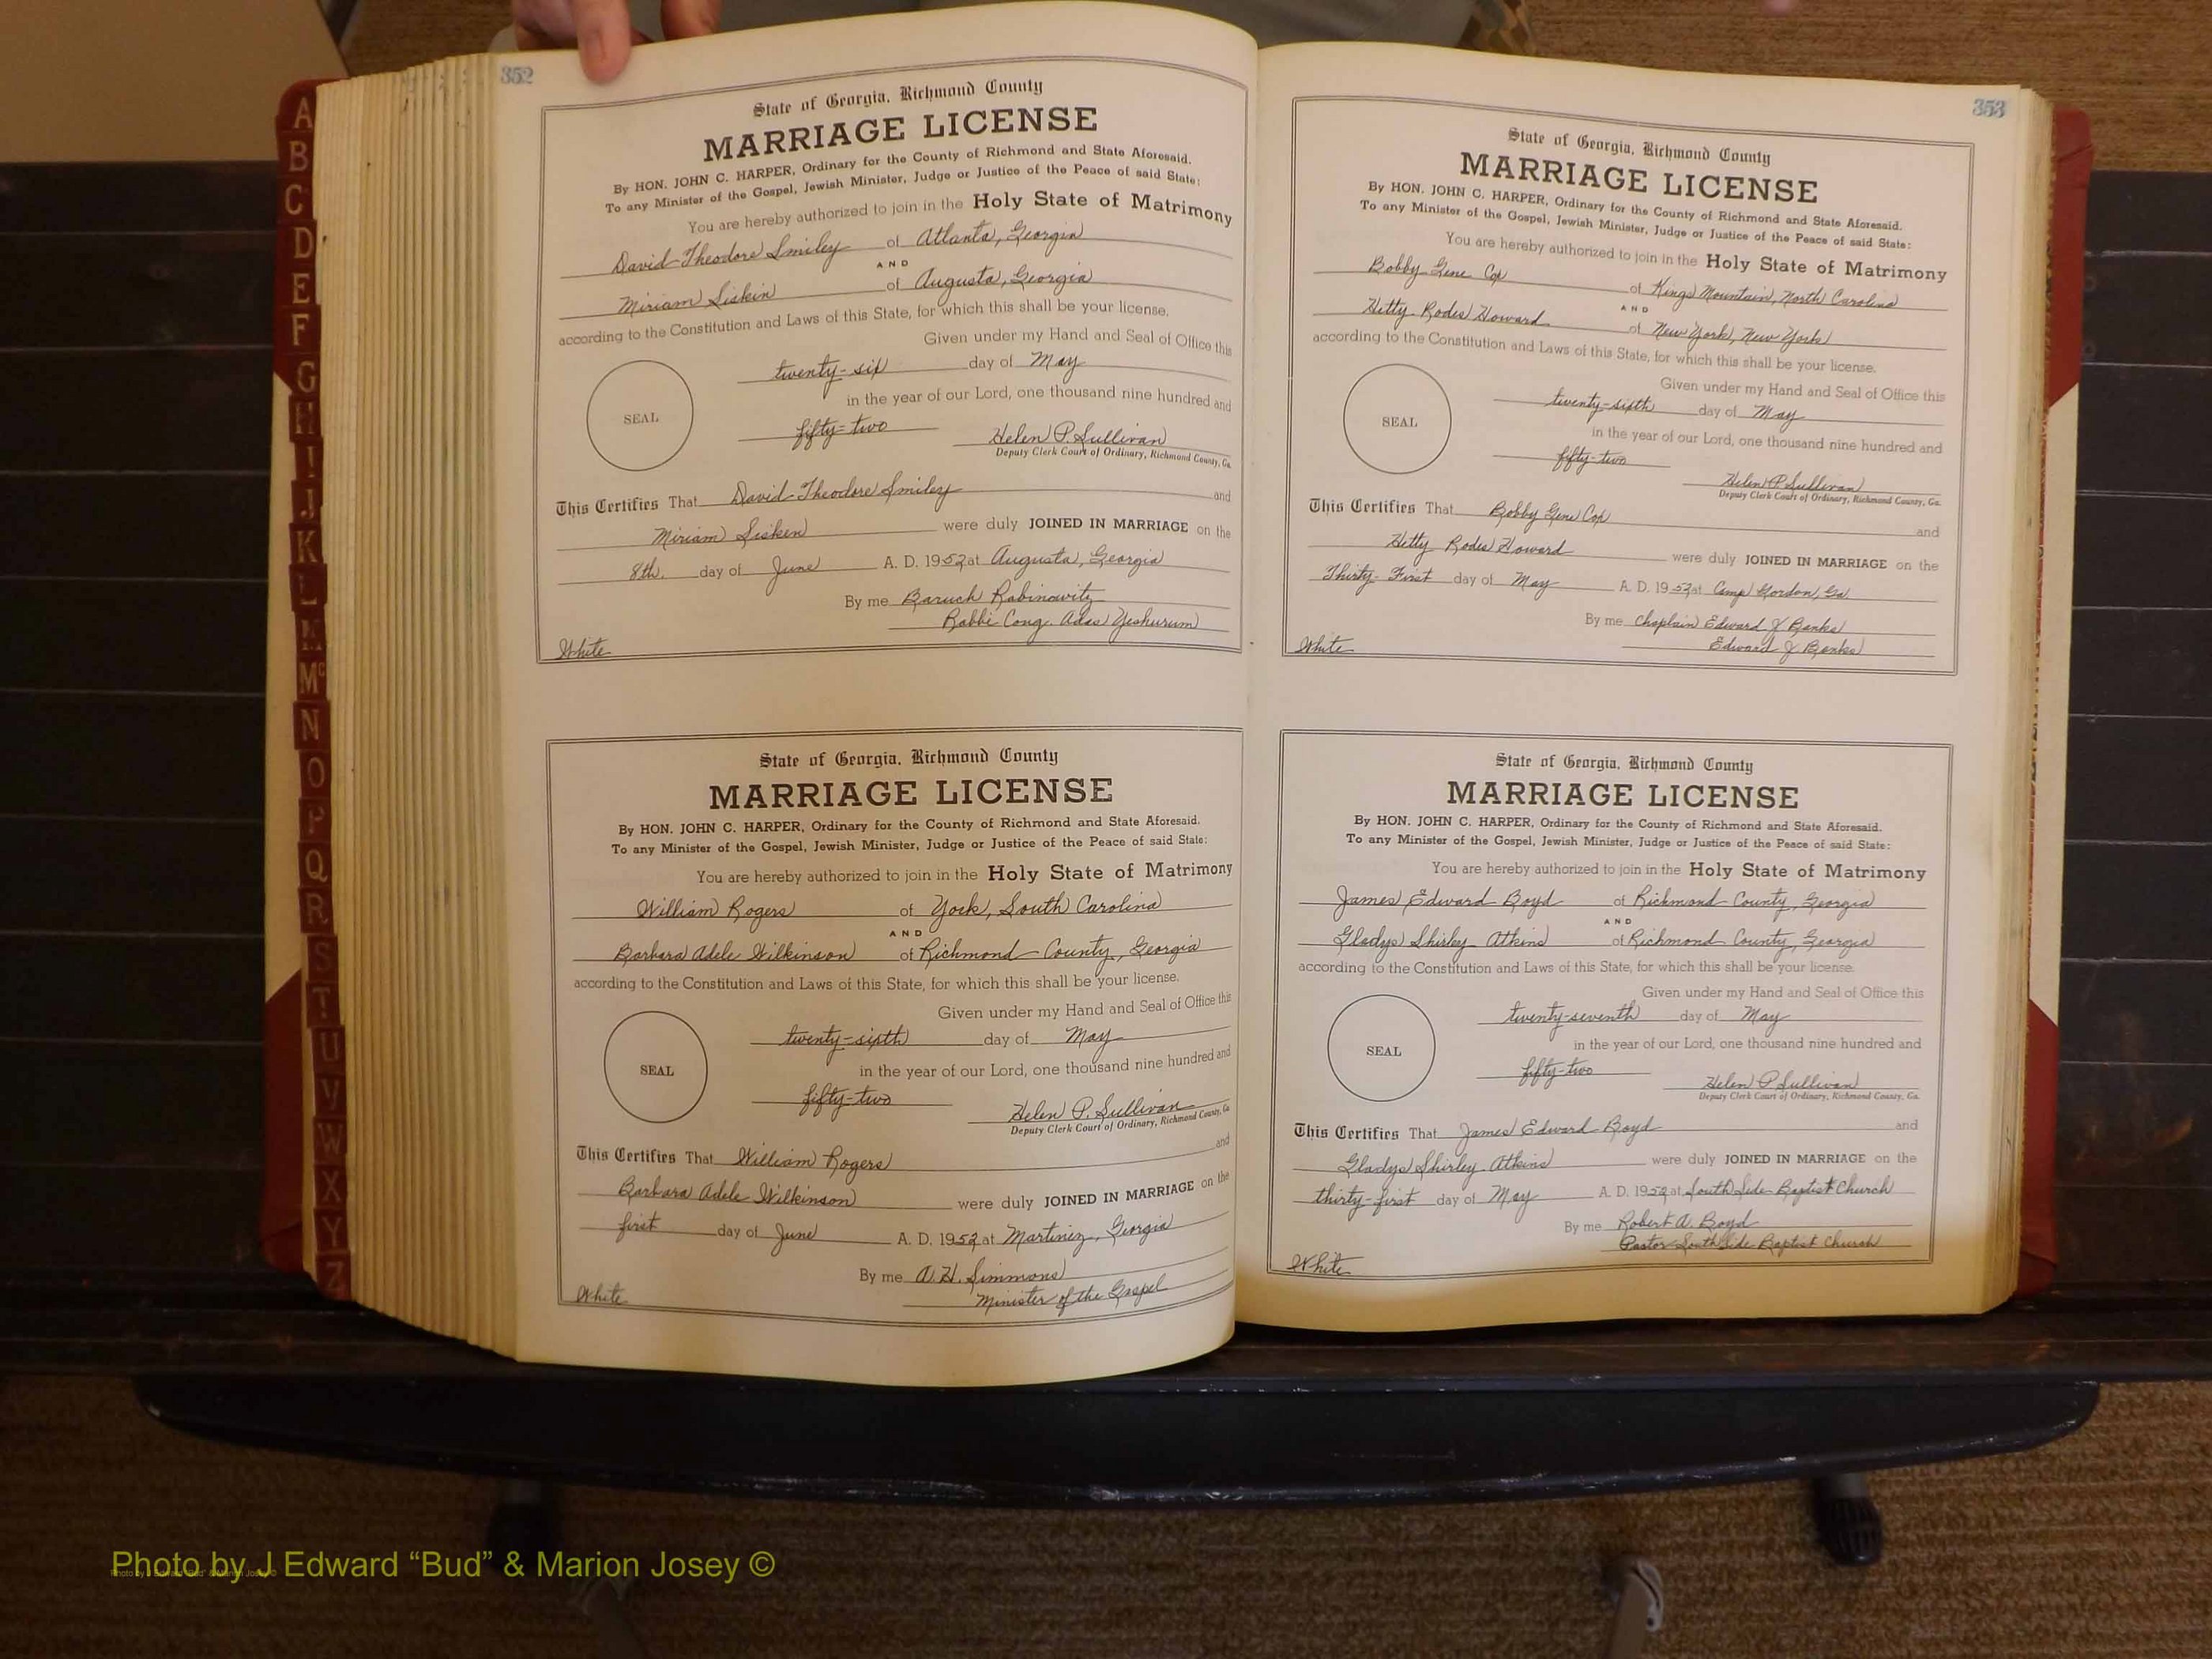 352
State of Georgia, Richmond County
MARRIAGE LICENSE
By HON. JOHN C. HARPER, Ordinary for the County of Richmond and State Aforesaid.
To any Minister of the Gospel, Jewish Minister, Judge or Justice of the Peace of said State:
You are hereby authorized to join in the Holy State of Matrimony
David Theodore Smiley of Atlanta, Georgia
AND
Miriam Siskin of Augusta, Georgia
according to the Constitution and Laws of this State, for which this shall be your license.
Given under my Hand and Seal of Office this
twenty-six day of May
in the year of our Lord, one thousand nine hundred and
SEAL
fifty-two
Helen P. Sullivan
Deputy Clerk Court of Ordinary, Richmond County, Ga.
This Certifies That David Theodore Smiley and
Miriam Sisken were duly JOINED IN MARRIAGE on the
8th. day of June A. D. 1952 at Augusta, Georgia
By me Baruch Rabinowitz
Rabbi Cong. Adas Yeshurum
White
State of Georgia, Richmond County
MARRIAGE LICENSE
By HON. JOHN C. HARPER, Ordinary for the County of Richmond and State Aforesaid.
To any Minister of the Gospel, Jewish Minister, Judge or Justice of the Peace of said State:
You are hereby authorized to join in the Holy State of Matrimony
William Rogers of York, South Carolina
AND
Barbara Adele Wilkinson of Richmond County, Georgia
according to the Constitution and Laws of this State, for which this shall be your license.
Given under my Hand and Seal of Office this
twenty-sixth day of May
in the year of our Lord, one thousand nine hundred and
SEAL
fifty-two
Helen P. Sullivan
Deputy Clerk Court of Ordinary, Richmond County, Ga
This Certifies That William Rogers and
Barbara Adele Wilkinson were duly JOINED IN MARRIAGE on the
first day of June A. D. 1952 at Martinez, Georgia
By me A. H. Simmons
Minister of the Gospel
White
353
State of Georgia, Richmond County
MARRIAGE LICENSE
By HON. JOHN C. HARPER, Ordinary for the County of Richmond and State Aforesaid.
To any Minister of the Gospel, Jewish Minister, Judge or Justice of the Peace of said State:
You are hereby authorized to join in the Holy State of Matrimony
Bobby Gene Cox of Kings Mountain, North Carolina
AND
Hitty Rodes Howard of New York, New York
according to the Constitution and Laws of this State, for which this shall be your license.
Given under my Hand and Seal of Office this
twenty-sixth day of May
in the year of our Lord, one thousand nine hundred and
SEAL
fifty-two
Helen P. Sullivan
Deputy Clerk Court of Ordinary, Richmond County, Ga.
This Certifies That Bobby Gene Cox and
Hitty Rodes Howard were duly JOINED IN MARRIAGE on the
Thirty-First day of May A. D. 1952 at Camp Gordon, Ga.
By me Chaplain Edward J Banks
Edward J Banks
White
State of Georgia, Richmond County
MARRIAGE LICENSE
By HON. JOHN C. HARPER, Ordinary for the County of Richmond and State Aforesaid.
To any Minister of the Gospel, Jewish Minister, Judge or Justice of the Peace of said State:
You are hereby authorized to join in the Holy State of Matrimony
James Edward Boyd of Richmond County, Georgia
AND
Gladys Shirley Atkins of Richmond County, Georgia
according to the Constitution and Laws of this State, for which this shall be your license.
Given under my Hand and Seal of Office this
twenty-seventh day of May
in the year of our Lord, one thousand nine hundred and
SEAL
fifty-two
Helen P Sullivan
Deputy Clerk Court of Ordinary, Richmond County, Ga.
This Certifies That James Edward Boyd and
Gladys Shirley Atkins were duly JOINED IN MARRIAGE on the
thirty-first day of May A. D. 1952 at South Side Baptist Church
By me Robert A. Boyd
Pastor South Side Baptist Church
White
A
B
C
D
E
F
G
H
I
J
K
L
M
Mc
N
O
P
Q
R
S
T
U
V
W
X
Y
Z
Photo by J Edward “Bud” & Marion Josey ©
Photo by J Edward “Bud” & Marion Josey ©